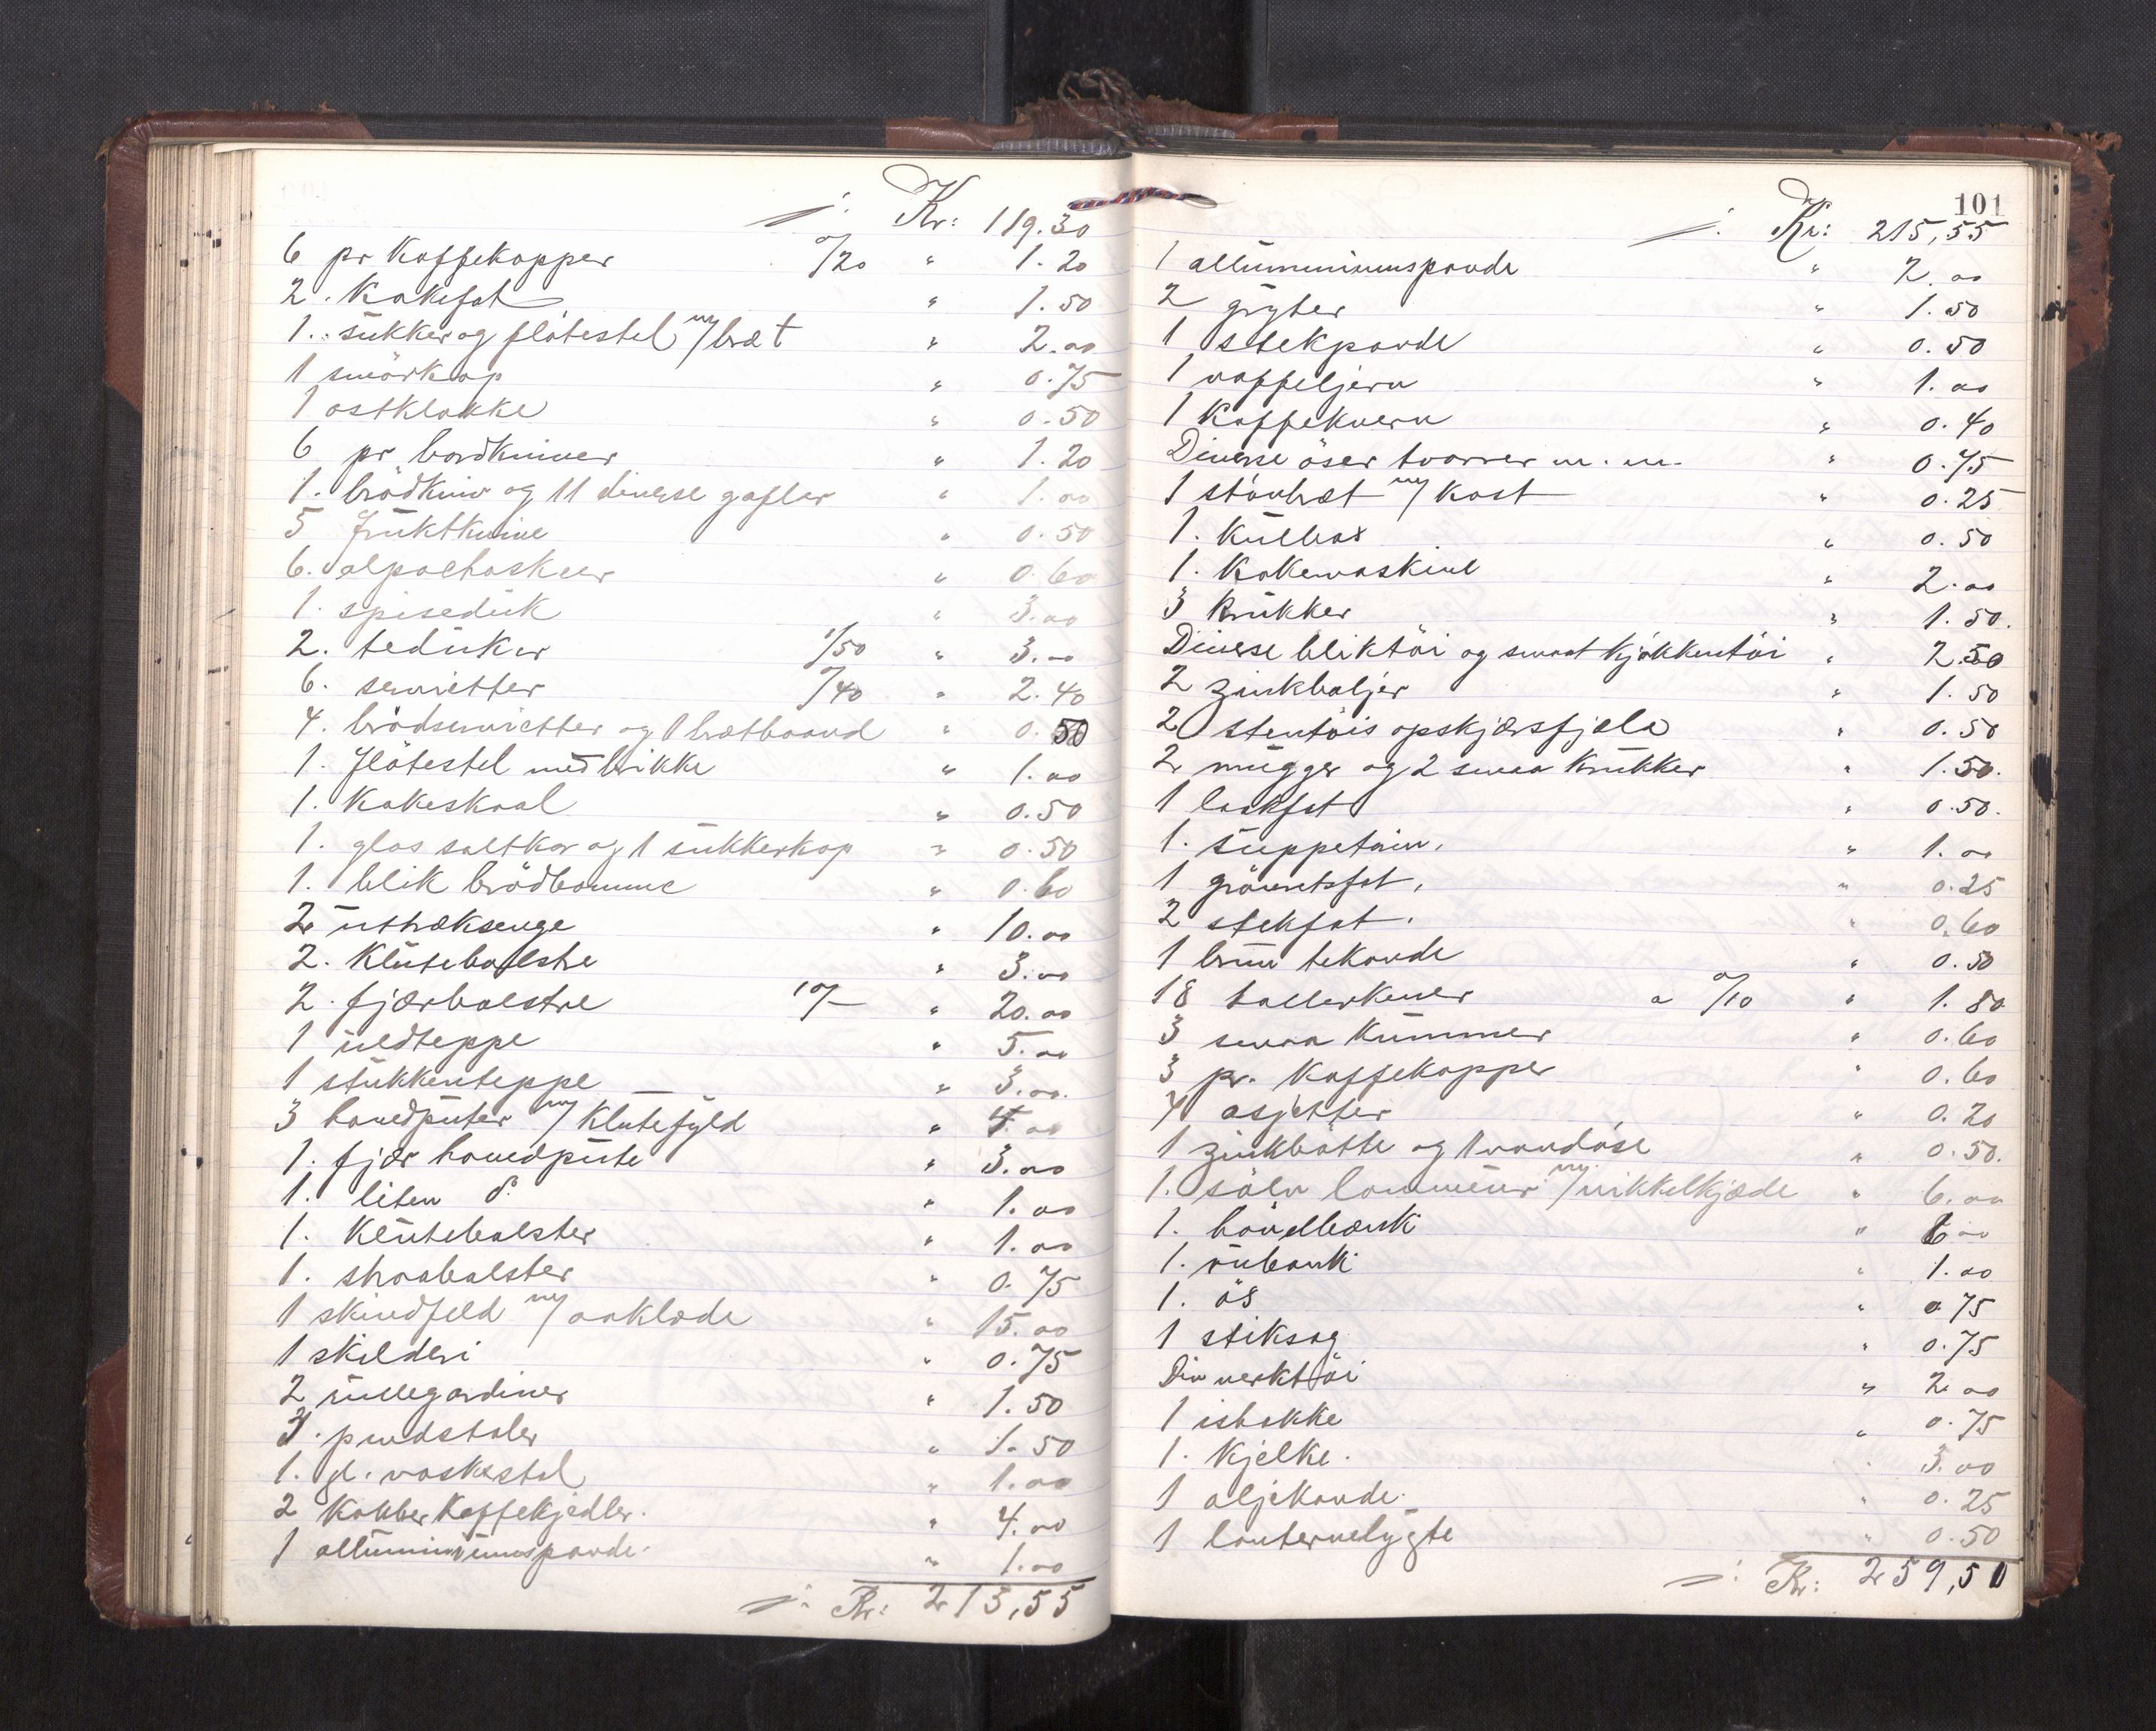 Kr: 119.30
6 pr Kaffekopper 0/20 " 1.20
2. Kakefat " 1.50
1. sukker og flötestel m/ bræt " 2.00
1 smörkop " 0.75
1 ostklokke " 0.50
6 pr bordkniver " 1.20
1. brödkniv og 11 diverse gafler " 1.00
5 fruktknive " 0.50
6. alpachaskeer " 0.60
1. spiseduk " 3.00
2. teduker 1/50 " 3.00
6. servietter 0/40 " 2.40
4. brödservietter og 1 brætbaand " 0.50
1. flötestel med brikke " 1.00
1. Kakeskaal " 0.50
1. glas saltkar og 1 sukkerkop " 0.50
1. blik brödbomme " 0.60
2 uttræksenge " 10.00
2. Klutebolstre " 3.00
2. fjærbolstre 10/– " 20.00
1 uldteppe " 5.00
1 stukkenteppe " 3.00.
3 hovedputer m/ Klutefyld " 4.00
1. fjær hovedpute " 3.00
1. liten do " 1.00
1. Klutebolster " 1.00
1. straabolster " 0.75
1 skindfeld m/ aaklæde " 15.00
1 skilderi " 0.75
2 rullegardiner " 1.50
3. pindstoler " 1.50
1. gl. vaskestel " 1.00
2 Kobber Kaffekjedler. " 4.00
1 alluminiumspande. " 1.00
Kr: 213,55
101
Kr: 215,55
1 alluminiumspande " 2.00
2 gryter " 1.50
1 stekpande " 0.50
1 vaffeljern " 1.00
1 Kaffekvern " 0.40
Diverse öser tvarrer m.m. " 0.75
1 stövbræt m/ Kost " 0.25
1. Kulbox " 0.50
1. Kokemaskine " 2.00
3 Krukker " 1.50.
Diverse bliktöi og smaat kjökkentöi " 2.50
2 zinkbaljer " 1.50
2 stentöis opskjærsfjæle " 0.50
2 mugger og 2 smaa Krukker " 1.50.
1 laakfat " 0.50.
1. suppeterin. " 1.00
1 grönnetsfat. " 0.25
2 stekfat. " 0.60
1 brun tekande " 0.50
18 tallerkener a 0/10 " 1.80
3 smaa Kummer " 0.60
3 pr. Kaffekopper " 0.60
4 asjetter " 0.20
1 zinkbötte og 1 vandöse " 0.50.
1. sölv lommeur m/ nikkelkjæde " 6.00
1. hövelbænk " 6.00
1. rubank " 1.00
1. ös " 0.75
1 stiksag " 0.75
Div verktöi " 2.00
1 ishakke " 0.75
1. Kjelke. " 3.00
1 oljekande. " 0.25
1 lanternelygte " 0.50
Kr: 259,50